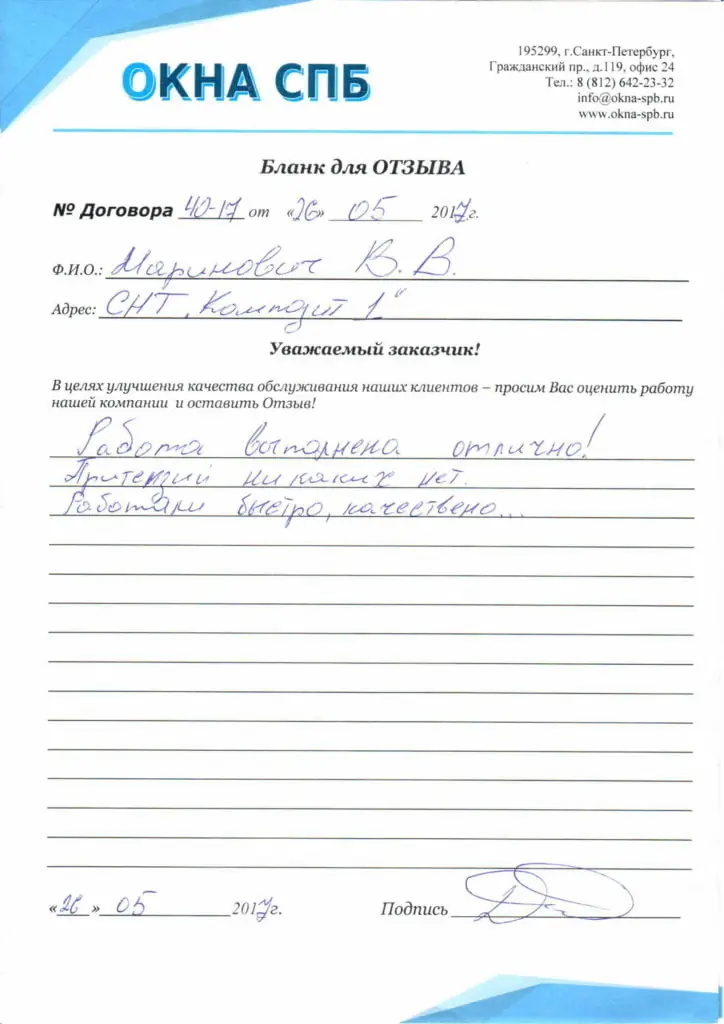 ОКНА СПБ
195299, г.Санкт-Петербург,
Гражданский пр., д.119, офис 24
Тел.: 8 (812) 642-23-32
info@okna-spb.ru
www.okna-spb.ru
Бланк для ОТЗЫВА
№ Договора 40-17 от «26» 05 2017г.
Ф.И.О.: Маринович В. В.
Адрес: СНТ „Композит 1"
Уважаемый заказчик!
В целях улучшения качества обслуживания наших клиентов – просим Вас оценить работу
нашей компании и оставить Отзыв!
Работа выполнена отлично!
Притензий ни каких нет.
Работали быстро, качествено...
«26» 05 2017г. Подпись